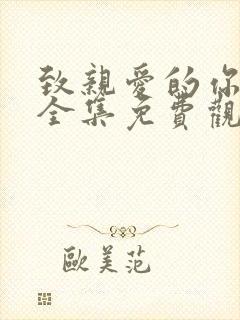 致親愛的你
全集免費觀
歐美范